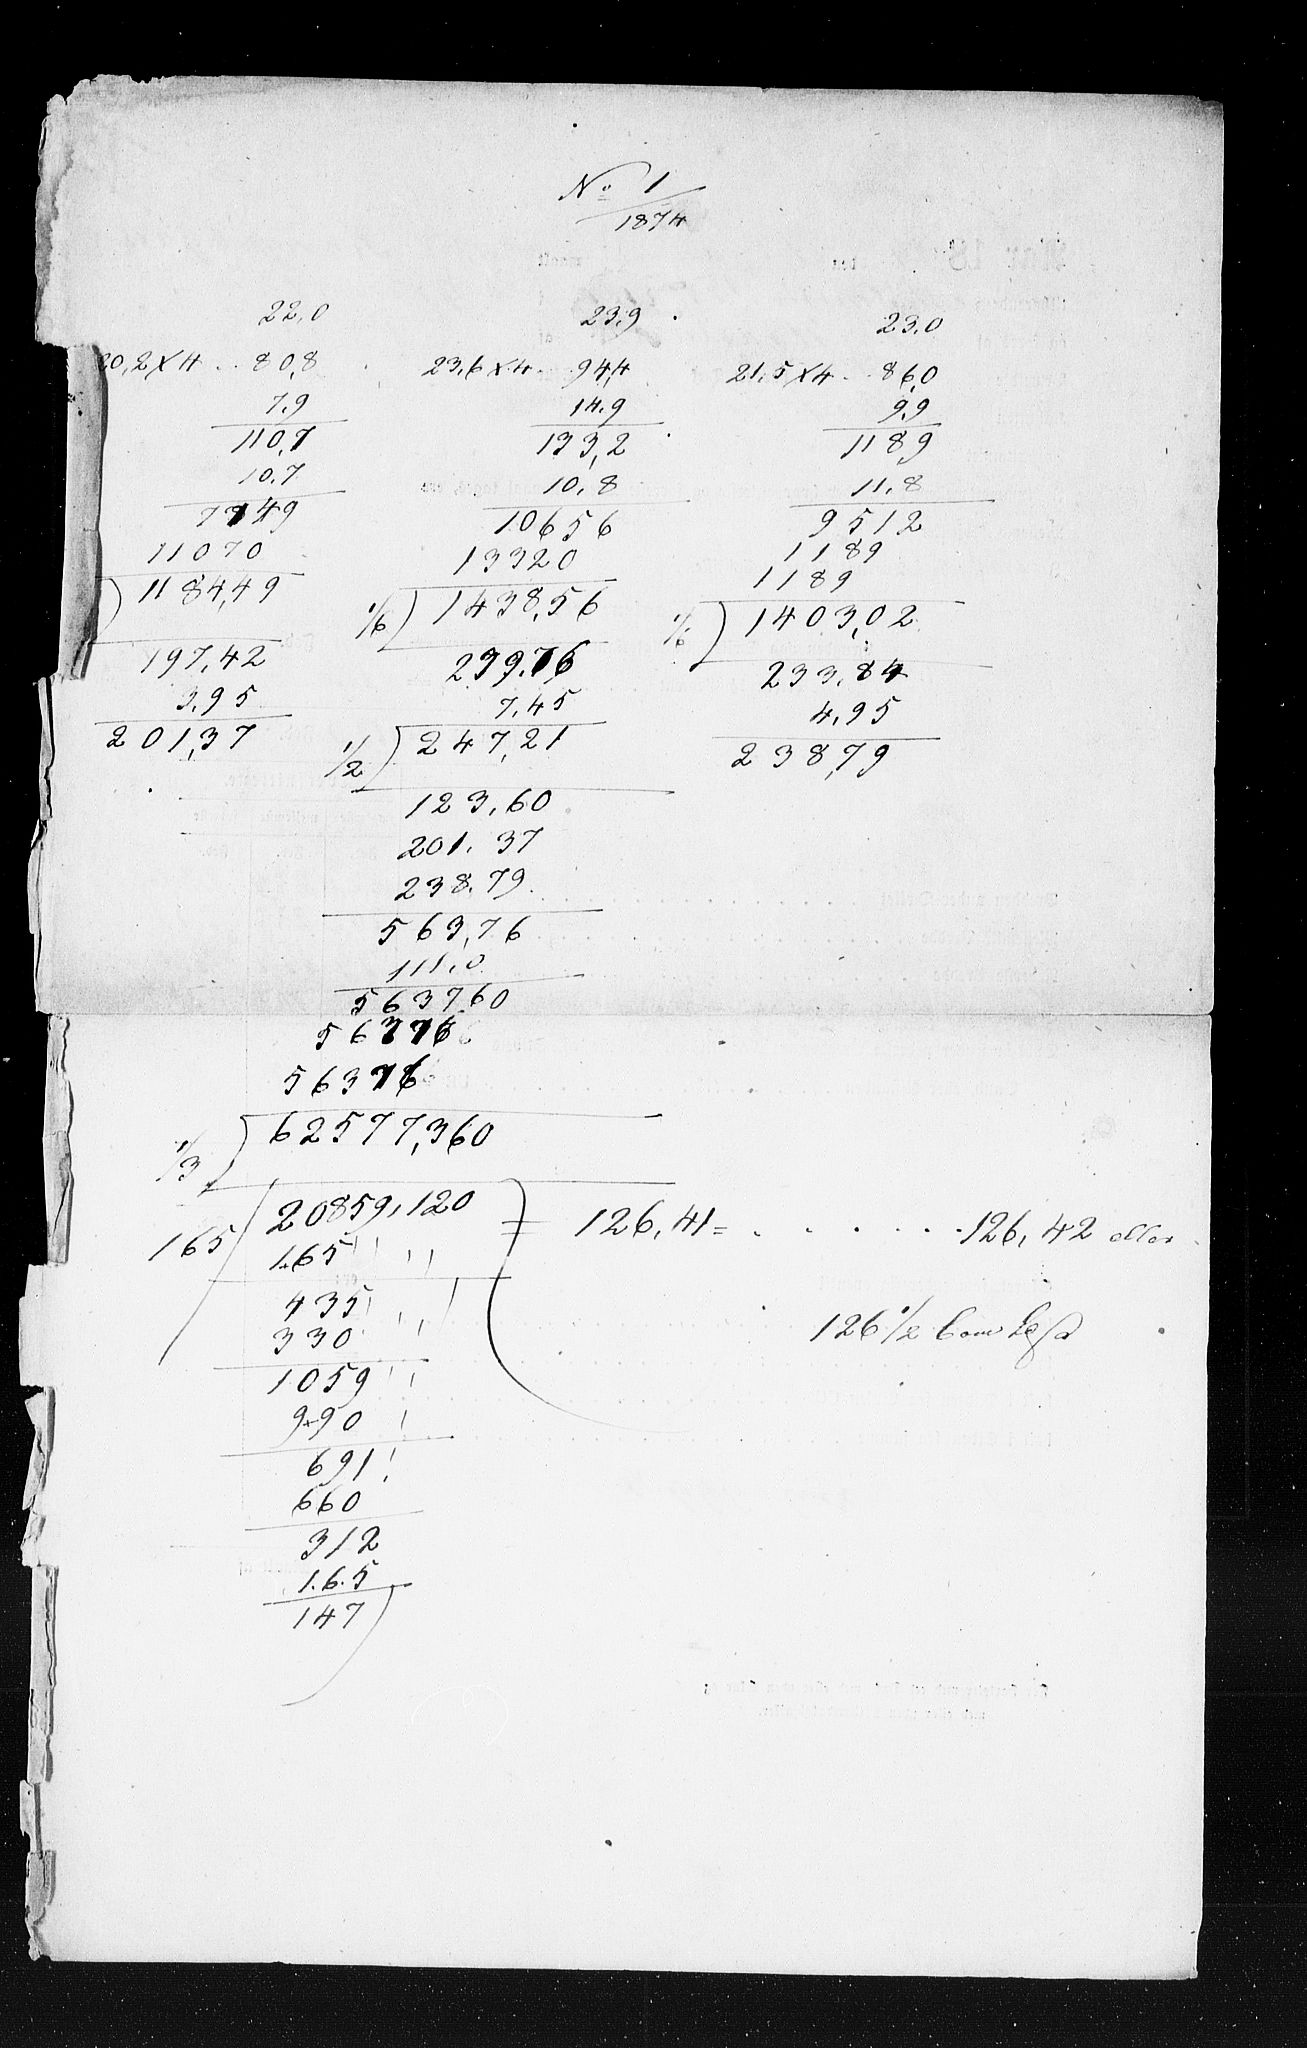 No 1
1874
22,0
20,2 X 4 .. 80,8
7,9
110,7
10,7
7749
11070
) 1184,49
197,42
3,95
201,37
23,9
23,6 X 4 .. 94,4
14,9
133,2
10,8
10656
13320
1/6 ) 1438,56
239,76
7,45
1/2 ) 247,21
123,60
201,37
238,79
563,76
111,0
563760
56376
56376
1/3 ) 62577,360
165 / 20859,120 = 126,41 = . . . . . . 126,42 eller
165
435
330
1059
990
691
660
312
165
147
23,0
21,5 X 4 .. 86,0
9,9
1189
11,8
9512
1189
1189
1/6 ) 1403,02
233,84
4,95
238,79
126 1/2 Com Lest